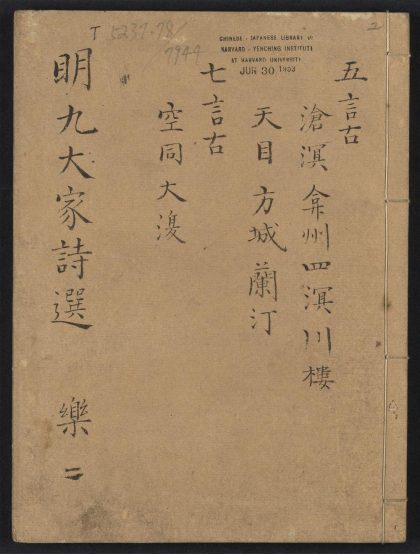 五言古
滄溟弇州四溟川樓
天目方城蘭汀
七言古
空同大復
明九大家詩選 樂 二
T 5237.78/
7944
CHINESE - JAPANESE LIBRARY OF
HARVARD - YENCHING INSTITUTE
AT HARVARD UNIVERSITY
JUN 30 1953
2